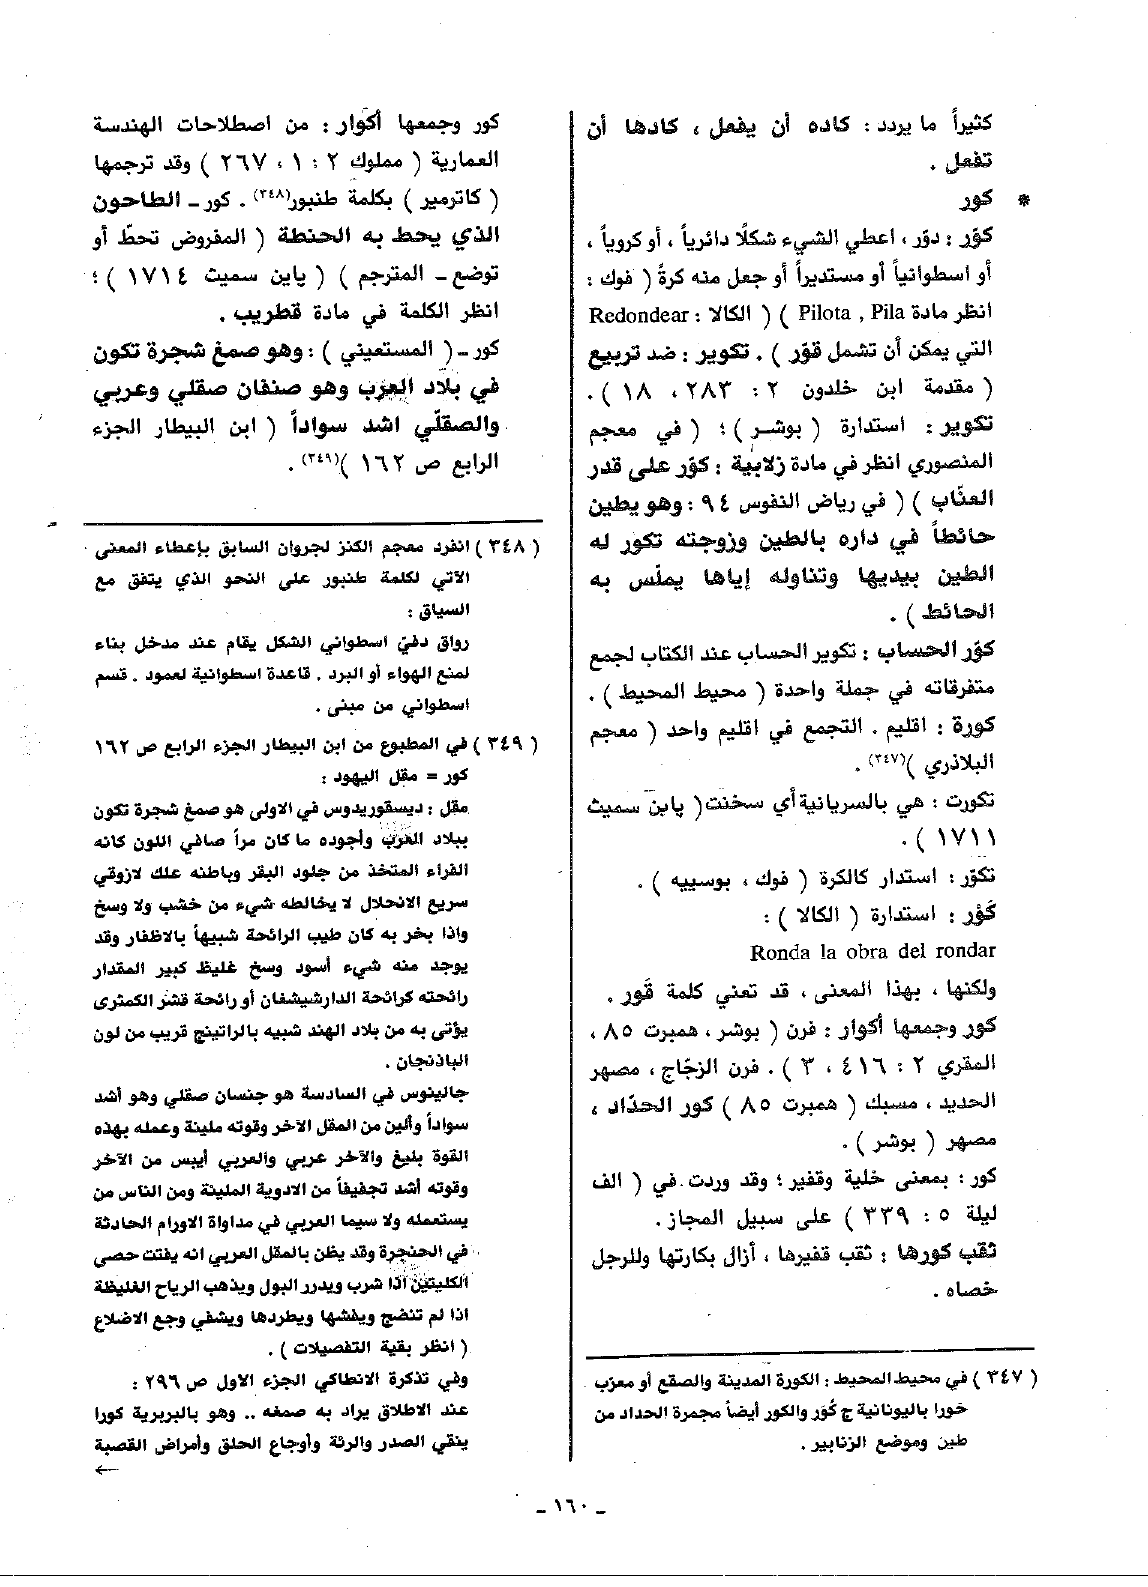 كثيراً ما يردد : كاده أن يفعل ، كادها أن
تفعل .
* كور
كوّر : دوّر ، اعطي الشيء شكلًا دائرياً ، أو كروياً ،
أو اسطوانياً أو مستديراً أو جعل منه كرةً ( فوك :
انظر مادة Pilota , Pila ) ( الكالا : Redondear
التي يمكن أن تشمل قوّر ) . تكوير : ضد تربيع
( مقدمة ابن خلدون ٢ : ٢٨٣ ، ١٨ ) .
تكوير : استدارة ( بوشر ) ؛ ( في معجم
المنصوري انظر في مادة زلابية : كوّر على قدر
العنّاب ) ( في رياض النفوس ٩٤ : وهو يطين
حائطاً في داره بالطين وزوجته تكور له
الطين بيديها وتناوله إياها يملّس به
الحائط ) .
كوّر الحساب : تكوير الحساب عند الكتاب لجمع
متفرقاته في جملة واحدة ( محيط المحيط ) .
كورة : اقليم . التجمع في اقليم واحد ( معجم
البلاذري )(٣٤٧) .
تكورت : هي بالسريانية أي سخنت ( پاين سميث
١٧١١ ) .
تكوّر : استدار كالكرة ( فوك ، بوسييه ) .
كَوْر : استدارة ( الكالا ) :
Ronda la obra del rondar
ولكنها ، بهذا المعنى ، قد تعني كلمة قَور .
كور وجمعها أكوار : فرن ( بوشر ، همبرت ٨٥ ،
المقري ٢ : ٤١٦ ، ٣ ) . فرن الزجّاج ، مصهر
الحديد ، مسبك ( همبرت ٨٥ ) كور الحدّاد ،
مصهر ( بوشر ) .
كور : بمعنى خلية وقفير ؛ وقد وردت في ( الف
ليلة ٥ : ٣٣٩ ) على سبيل المجاز .
ثقب كورها : ثقب قفيرها ، أزال بكارتها وللرجل
خصاه .
( ٣٤٧ ) في محيط المحيط : الكورة المدينة والصقع أو معرب
خورا باليونانية ج كُوَر والكور أيضاً مجمرة الحداد من
طين وموضع الزنابير .
كور وجمعها أكوار : من اصطلاحات الهندسة
العمارية ( مملوك ٢ : ١ ، ٢٦٧ ) وقد ترجمها
( كاترمير ) بكلمة طنبور(٣٤٨) . كور - الطاحون
الذي يحط به الحنطة ( المفروض تحطّ أو
توضع - المترجم ) ( پاين سميث ١٧١٤ ) ؛
انظر الكلمة في مادة قطريب .
كور - ( المستعيني ) : وهو صمغ شجرة تكون
في بلاد العرب وهو صنفان صقلي وعربي
والصقلّي اشد سواداً ( ابن البيطار الجزء
الرابع ص ١٦٢ )(٣٤٩) .
( ٣٤٨ ) انفرد معجم الكنز لجروان السابق بإعطاء المعنى
الآتي لكلمة طنبور على النحو الذي يتفق مع
السياق :
رواق دفيّ اسطواني الشكل يقام عند مدخل بناء
لمنع الهواء أو البرد . قاعدة اسطوانية لعمود . قسم
اسطواني من مبنى .
( ٣٤٩ ) في المطبوع من ابن البيطار الجزء الرابع ص ١٦٢
كور = مقل اليهود :
مقل : ديسقوريدوس في الاولى هو صمغ شجرة تكون
ببلاد العرب وأجوده ما كان مراً صافي اللون كانه
الفراء المتخذ من جلود البقر وباطنه علك لازوقي
سريع الانحلال لا يخالطه شيء من خشب ولا وسخ
واذا بخر به كان طيب الرائحة شبيهاً بالاظفار وقد
يوجد منه شيء أسود وسخ غليظ كبير المقدار
رائحته كرائحة الدارشيشفان أو رائحة قشر الكمثرى
يؤتى به من بلاد الهند شبيه بالراتينج قريب من لون
الباذنجان .
جالينوس في السادسة هو جنسان صقلي وهو أشد
سواداً وألين من المقل الآخر وقوته ملينة وعمله بهذه
القوة بليغ والآخر عربي والعربي أيبس من الآخر
وقوته أشد تجفيفاً من الادوية الملينة ومن الناس من
يستعمله ولا سيما العربي في مداواة الاورام الحادثة
في الحنجرة وقد يظن بالمقل العربي انه يفتت حصى
الكليتين اذا شرب ويدرر البول ويذهب الرياح الغليظة
اذا لم تنضج ويفشها ويطردها ويشفي وجع الاضلاع
( انظر بقية التفصيلات ) .
وفي تذكرة الانطاكي الجزء الاول ص ٢٩٦ :
عند الاطلاق يراد به صمغه .. وهو بالبربرية كورا
ينقي الصدر والرئة وأوجاع الحلق وأمراض القصبة
←
- ١٦٠ -